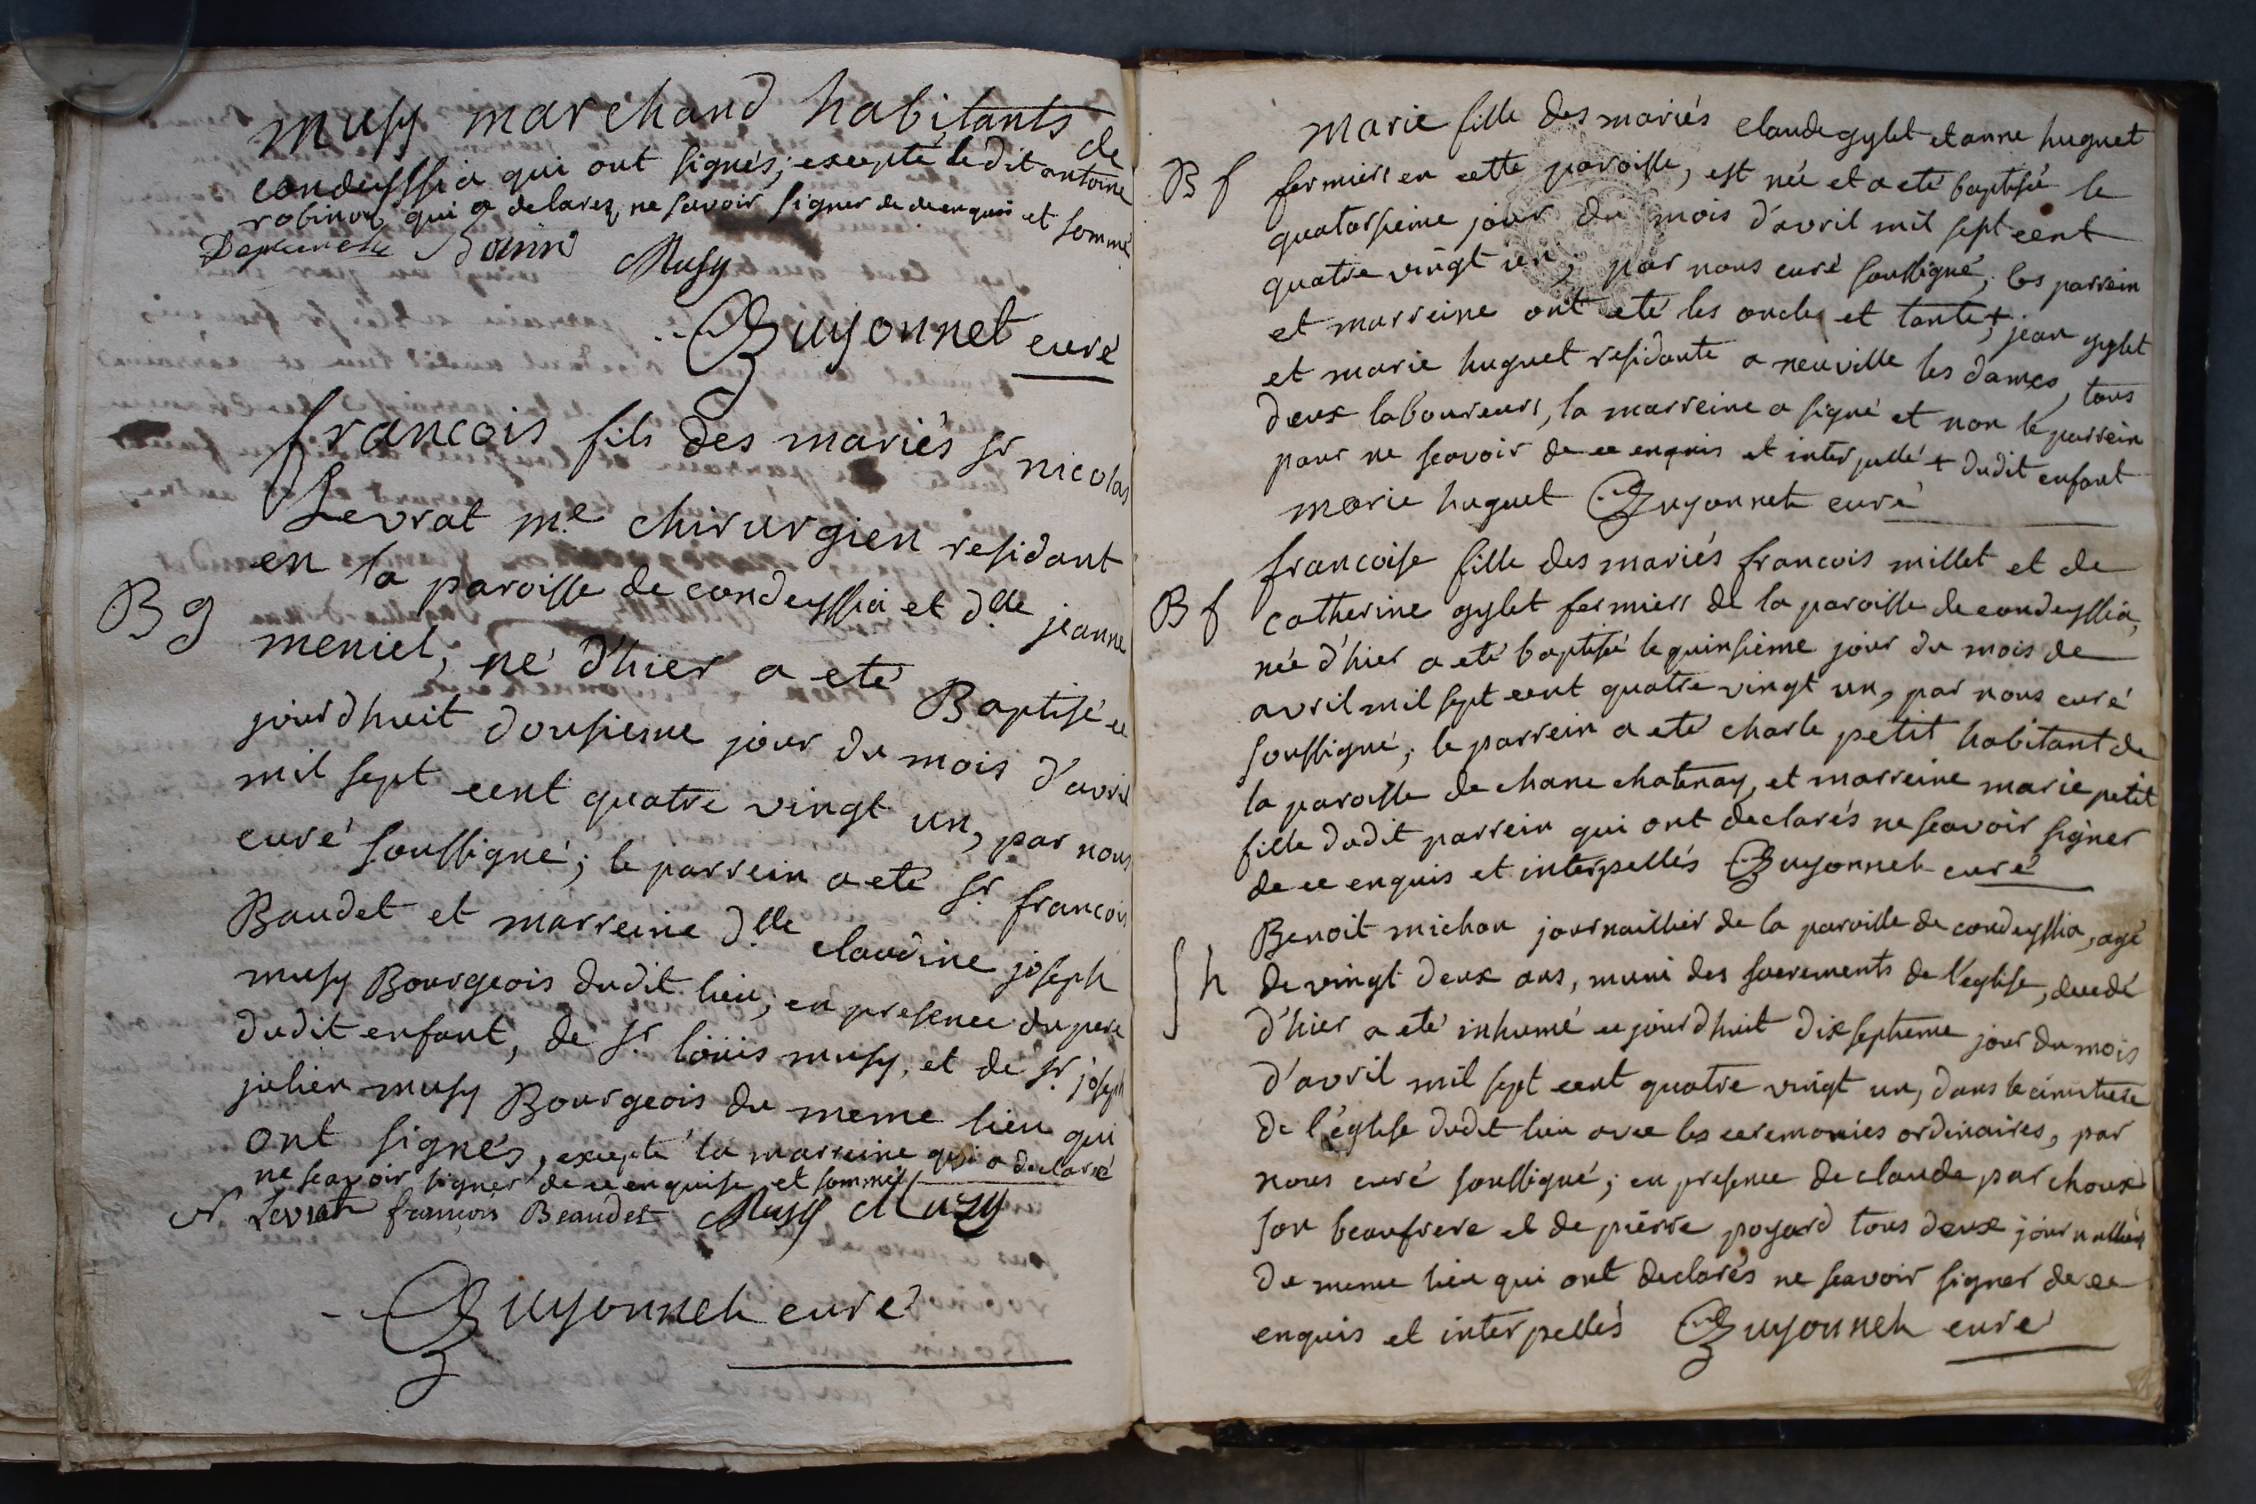 musy marchand habitants de
condeyssia qui ont signés; excepté ledit antoine
robin qui a declarez ne savoir signer de ce enquis et sommé
Musy
Guyonnet curé
francois fils des mariés sr nicolas
Levrat me. chirurgien residant
en la paroisse de condeyssia et d.lle jeanne
B g
meniel, né d'hier a eté Baptisé ce
jourdhuit dousieme jour du mois d'avril
mil sept cent quatre vingt un, par nous
curé soussigné; le parrein a eté sr. francois
Baudet et marreine d.lle claudine joseph
musy Bourgeois dudit lieu, en presence du pere
dudit enfant, de sr. loüis musy, et de sr. joseph
julien musy Bourgeois du meme lieu qui
ont signés, excepté la marreine qui a declaré
ne scavoir signer de ce enquise et sommée
N Levrat françois Beaudet Musy Muzy
Guyonnet curé
Marie fille des mariés claude gylet et anne huguet
B f
fermiers en cette paroisse, est née et a eté baptisée le
quatorsieme jour du mois d'avril mil sept cent
quatre vingt un; par nous curé soussigné; les parrein
et marreine ont eté les oncle et tante + jean gylet
et marie huguet residante a neuville les dames, tous
deux laboureurs, la marreine a signé et non le parrein
pour ne scavoir de ce enquis et interpellé + dudit enfant
marie huguet Guyonnet curé
francoise fille des mariés francois millet et de
B f
catherine gylet fermiers de la paroisse de condeyssia,
née d'hier a eté baptisée le quinsieme jour du mois de
avril mil sept cent quatre vingt un, par nous curé
soussigné; le parrein a eté charle petit habitant de
la paroisse de chane chatenay, et marreine marie petit
fille dudit parrein qui ont declarés ne scavoir signer
de ce enquis et interpellés Guyonnet curé
Benoit michon journaillier de la paroisse de condeyssia, agé
S h
de vingt deux ans, muni des sacrements de l'eglise, decedé
d'hier a eté inhumé ce jourdhuit dix septieme jour du mois
d'avril mil sept cent quatre vingt un, dans le cimetiere
de l'église dudit lieu avec les ceremonies ordinaires, par
nous curé soussigné; en presence de claude parchoux
son beaufrere et de piérre poyard tous deux journalliers
du meme lieu qui ont declarés ne scavoir signer de ce
enquis et interpellés Guyonnet curé